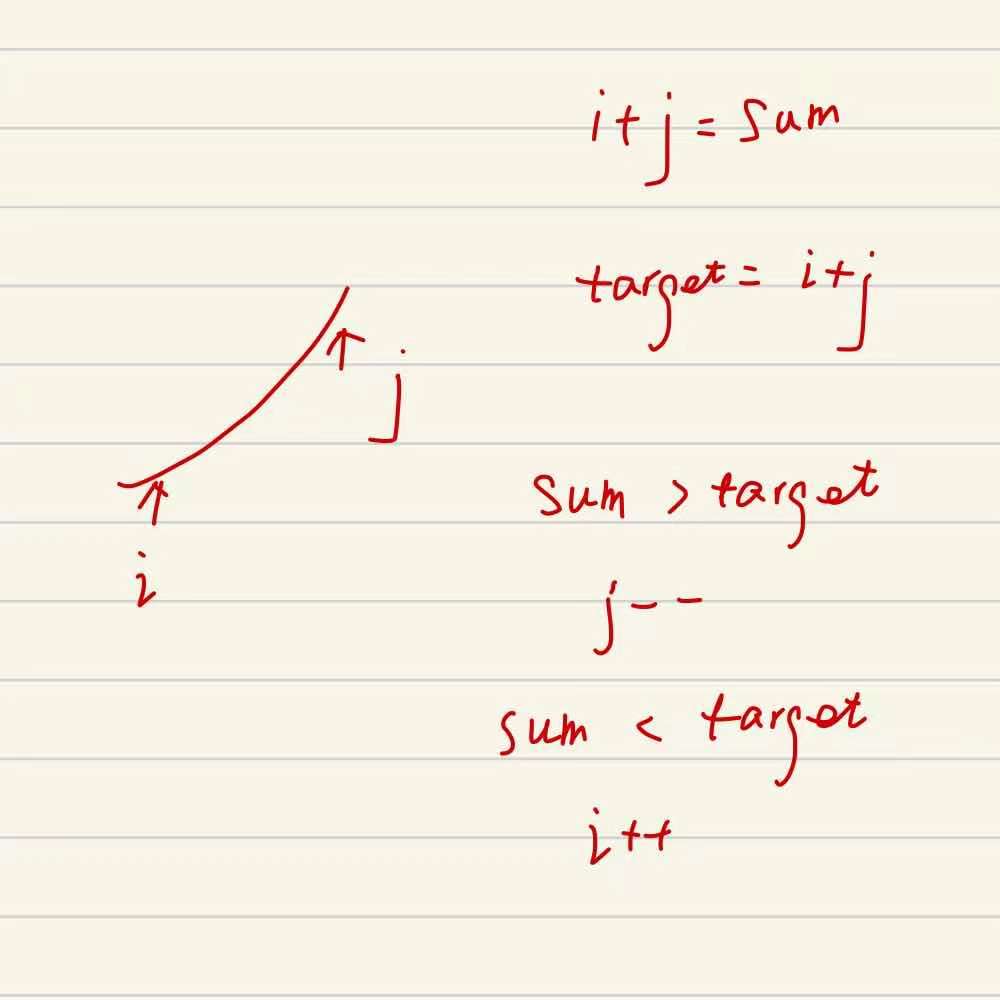 i+j = sum
target = i+j
j
i
sum > target
j--
sum < target
i++